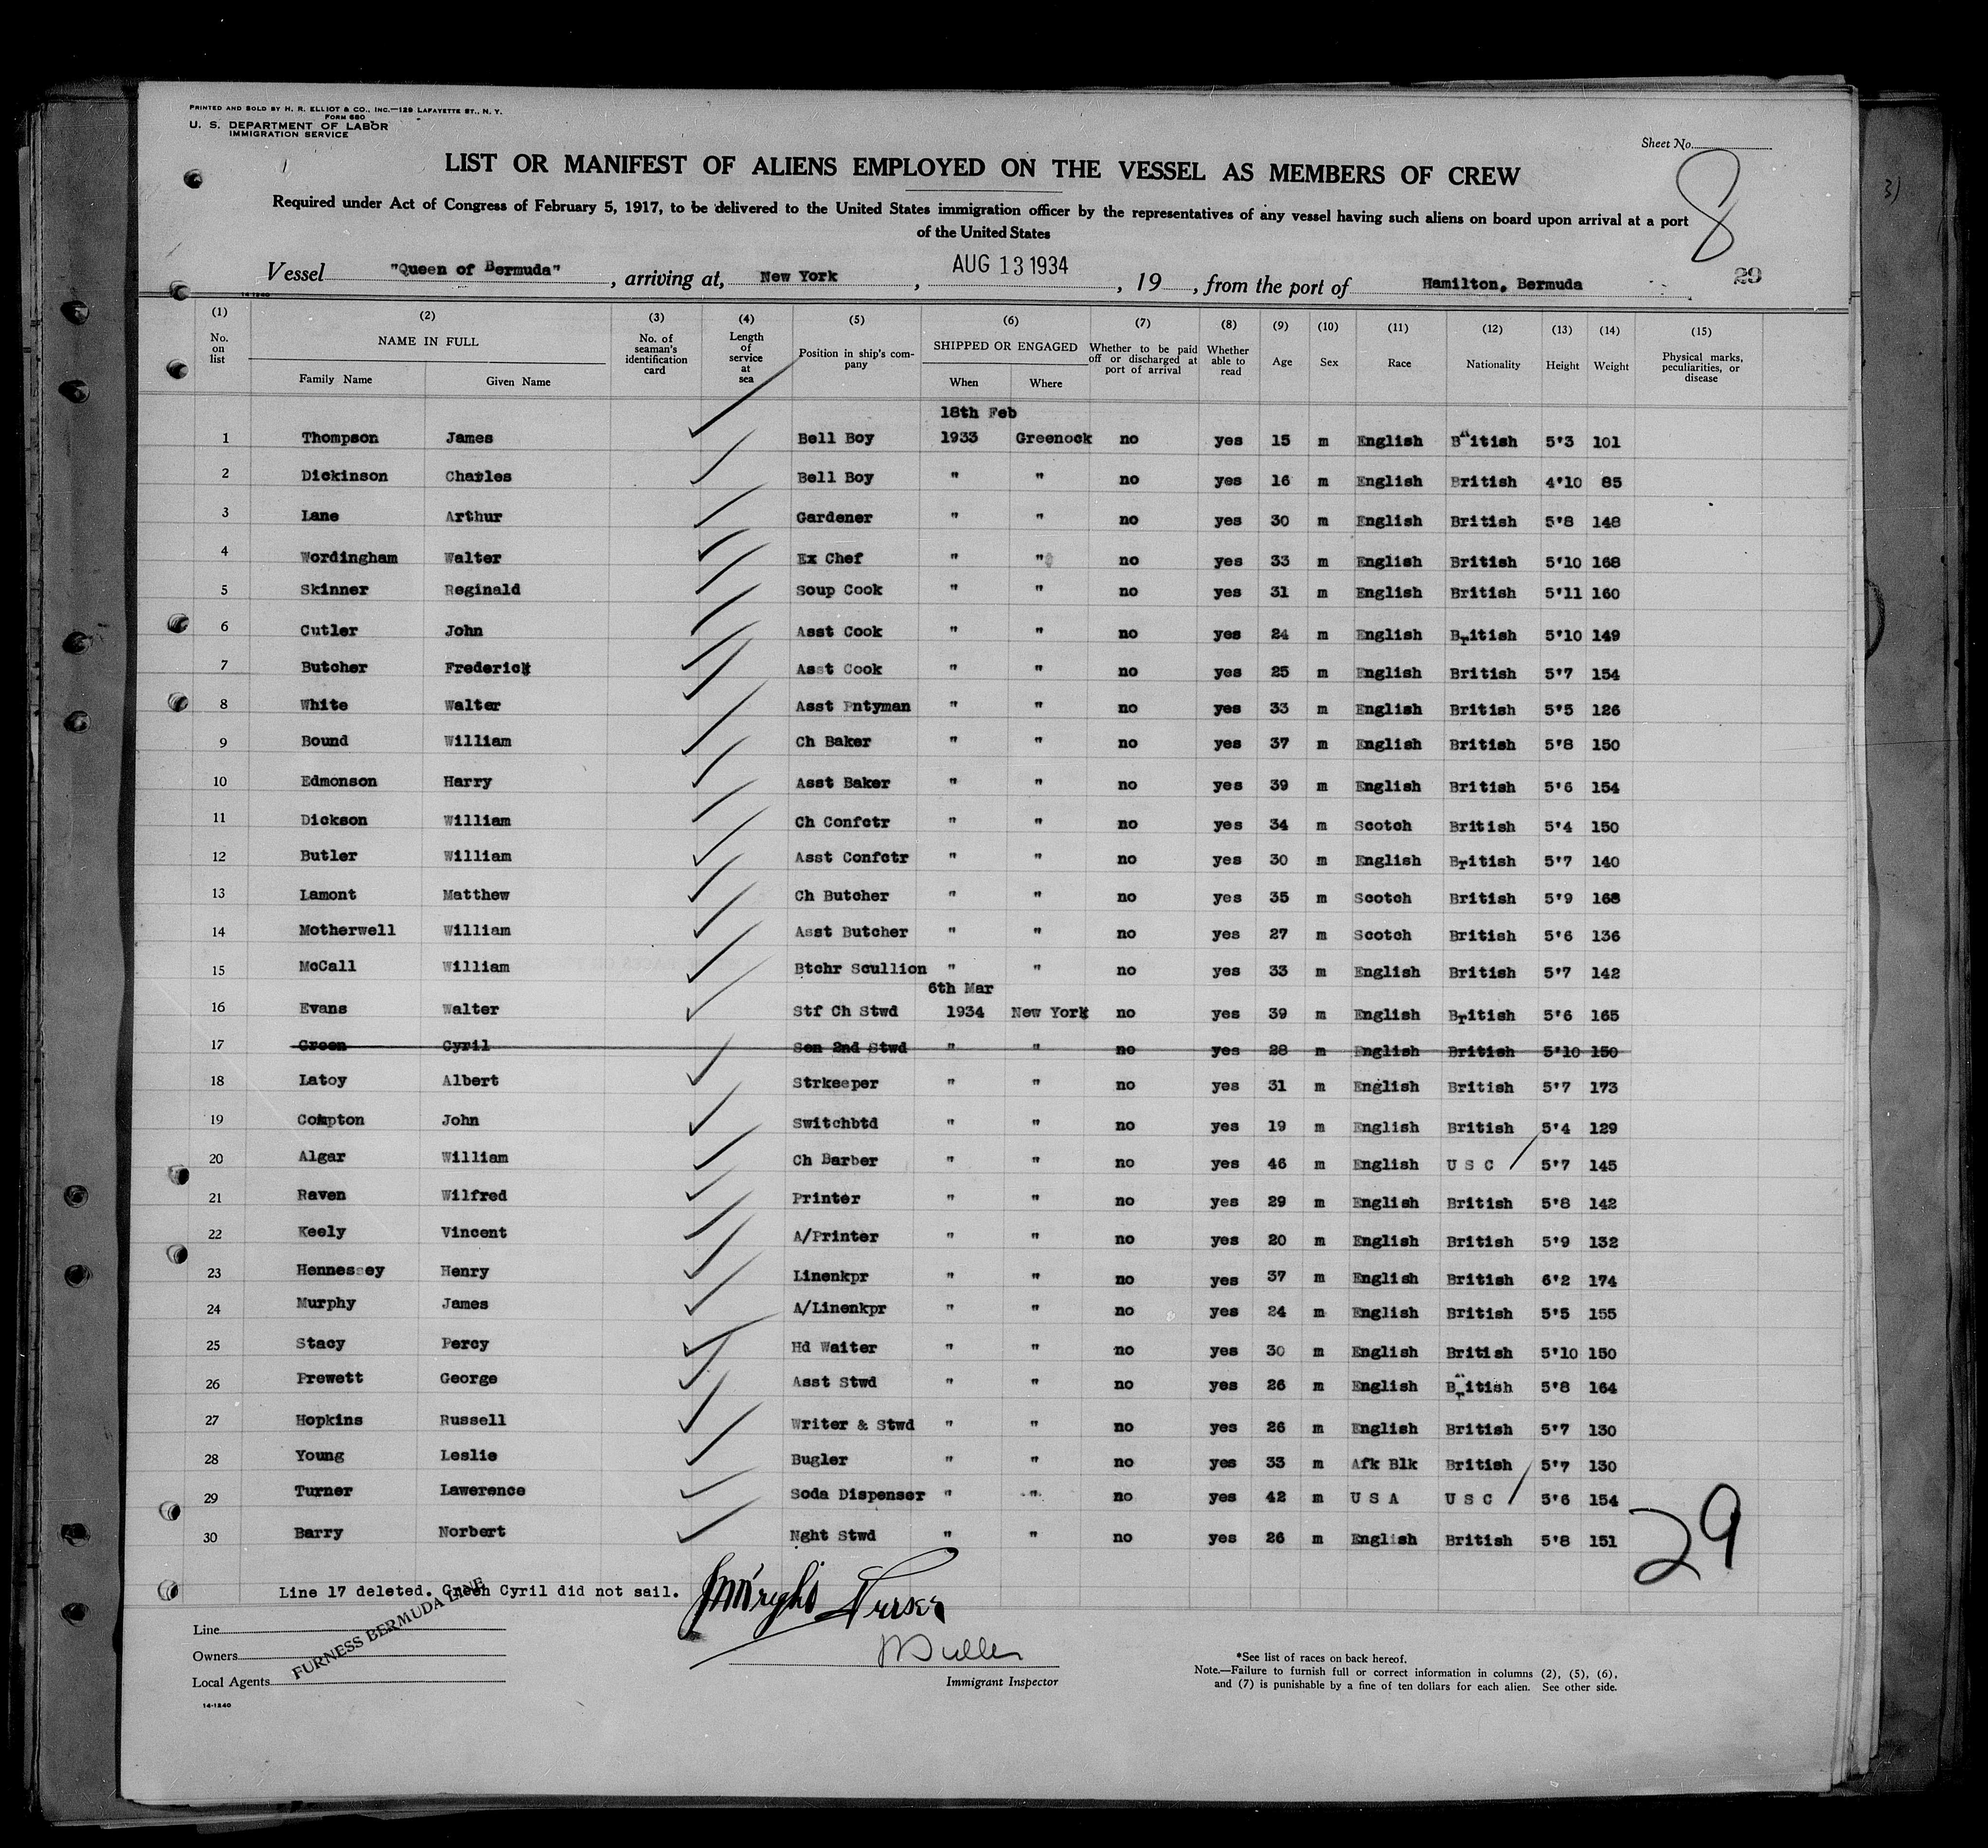 PRINTED AND SOLD BY H. R. ELLIOT & CO., INC.—129 LAFAYETTE ST., N. Y.
FORM 680
U. S. DEPARTMENT OF LABOR
IMMIGRATION SERVICE
Sheet No.
8
LIST OR MANIFEST OF ALIENS EMPLOYED ON THE VESSEL AS MEMBERS OF CREW
Required under Act of Congress of February 5, 1917, to be delivered to the United States immigration officer by the representatives of any vessel having such aliens on board upon arrival at a port
of the United States
Vessel "Queen of Bermuda", arriving at, New York, AUG 13 1934, 19 , from the port of Hamilton, Bermuda 29
14-1240
(1) (2) (3) (4) (5) (6) (7) (8) (9) (10) (11) (12) (13) (14) (15)
No. on list NAME IN FULL Family Name Given Name No. of seaman's identification card Length of service at sea Position in ship's company SHIPPED OR ENGAGED When Where Whether to be paid off or discharged at port of arrival Whether able to read Age Sex Race Nationality Height Weight Physical marks, peculiarities, or disease
18th Feb
1 Thompson James Bell Boy 1933 Greenock no yes 15 m English British 5'3 101
2 Dickinson Charles Bell Boy " " no yes 16 m English British 4'10 85
3 Lane Arthur Gardener " " no yes 30 m English British 5'8 148
4 Wordingham Walter Ex Chef " " no yes 33 m English British 5'10 168
5 Skinner Reginald Soup Cook " " no yes 31 m English British 5'11 160
6 Cutler John Asst Cook " " no yes 24 m English British 5'10 149
7 Butcher Frederick Asst Cook " " no yes 25 m English British 5'7 154
8 White Walter Asst Pntyman " " no yes 33 m English British 5'5 126
9 Bound William Ch Baker " " no yes 37 m English British 5'8 150
10 Edmonson Harry Asst Baker " " no yes 39 m English British 5'6 154
11 Dickson William Ch Confctr " " no yes 34 m Scotch British 5'4 150
12 Butler William Asst Confctr " " no yes 30 m English British 5'7 140
13 Lamont Matthew Ch Butcher " " no yes 35 m Scotch British 5'9 168
14 Motherwell William Asst Butcher " " no yes 27 m Scotch British 5'6 136
15 McCall William Btchr Scullion " " no yes 33 m English British 5'7 142
6th Mar
16 Evans Walter Stf Ch Stwd 1934 New York no yes 39 m English British 5'6 165
17 Green Cyril Sen 2nd Stwd " " no yes 28 m English British 5'10 150
18 Latoy Albert Strkeeper " " no yes 31 m English British 5'7 173
19 Compton John Switchbtd " " no yes 19 m English British 5'4 129
20 Algar William Ch Barber " " no yes 46 m English U S C 5'7 145
21 Raven Wilfred Printer " " no yes 29 m English British 5'8 142
22 Keely Vincent A/Printer " " no yes 20 m English British 5'9 132
23 Hennessey Henry Linenkpr " " no yes 37 m English British 6'2 174
24 Murphy James A/Linenkpr " " no yes 24 m English British 5'5 155
25 Stacy Percy Hd Waiter " " no yes 30 m English British 5'10 150
26 Prewett George Asst Stwd " " no yes 26 m English British 5'8 164
27 Hopkins Russell Writer & Stwd " " no yes 26 m English British 5'7 130
28 Young Leslie Bugler " " no yes 33 m Afk Blk British 5'7 130
29 Turner Lawerence Soda Dispenser " " no yes 42 m U S A U S C 5'6 154
30 Barry Norbert Nght Stwd " " no yes 26 m English British 5'8 151
29
Line 17 deleted. Green Cyril did not sail.
Purser
Line
Owners
Local Agents
FURNESS BERMUDA LINE
Immigrant Inspector
*See list of races on back hereof.
Note.—Failure to furnish full or correct information in columns (2), (5), (6),
and (7) is punishable by a fine of ten dollars for each alien. See other side.
14-1240